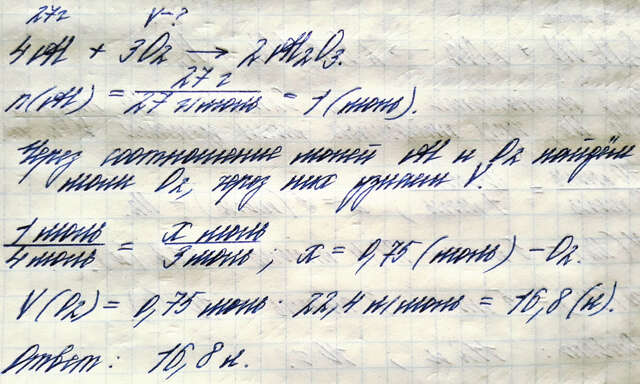 27г V-?
4Al + 3O₂ → 2Al₂O₃.
n(Al) = 27 г / 27 г/моль = 1 (моль).
Через соотношение молей Al и O₂ найдём
моли O₂, через них узнаем V.
1 моль / 4 моль = x моль / 3 моль ; x = 0,75 (моль) - O₂.
V(O₂) = 0,75 моль · 22,4 л/моль = 16,8 (л).
Ответ: 16,8 л.